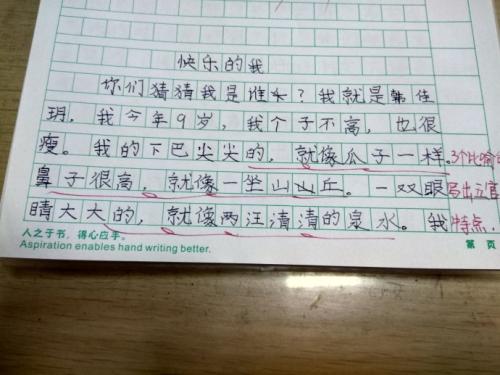 快乐的我
你们猜猜我是谁？我就是韩佳
玥，我今年9岁，我个子不高，也很
瘦。我的下巴尖尖的，就像瓜子一样。3个比喻句
鼻子很高，就像一坐山山丘。一双眼写出五官
睛大大的，就像两汪清清的泉水。我特点，
人之于书，得心应手。
Aspiration enables hand writing better.
第 页